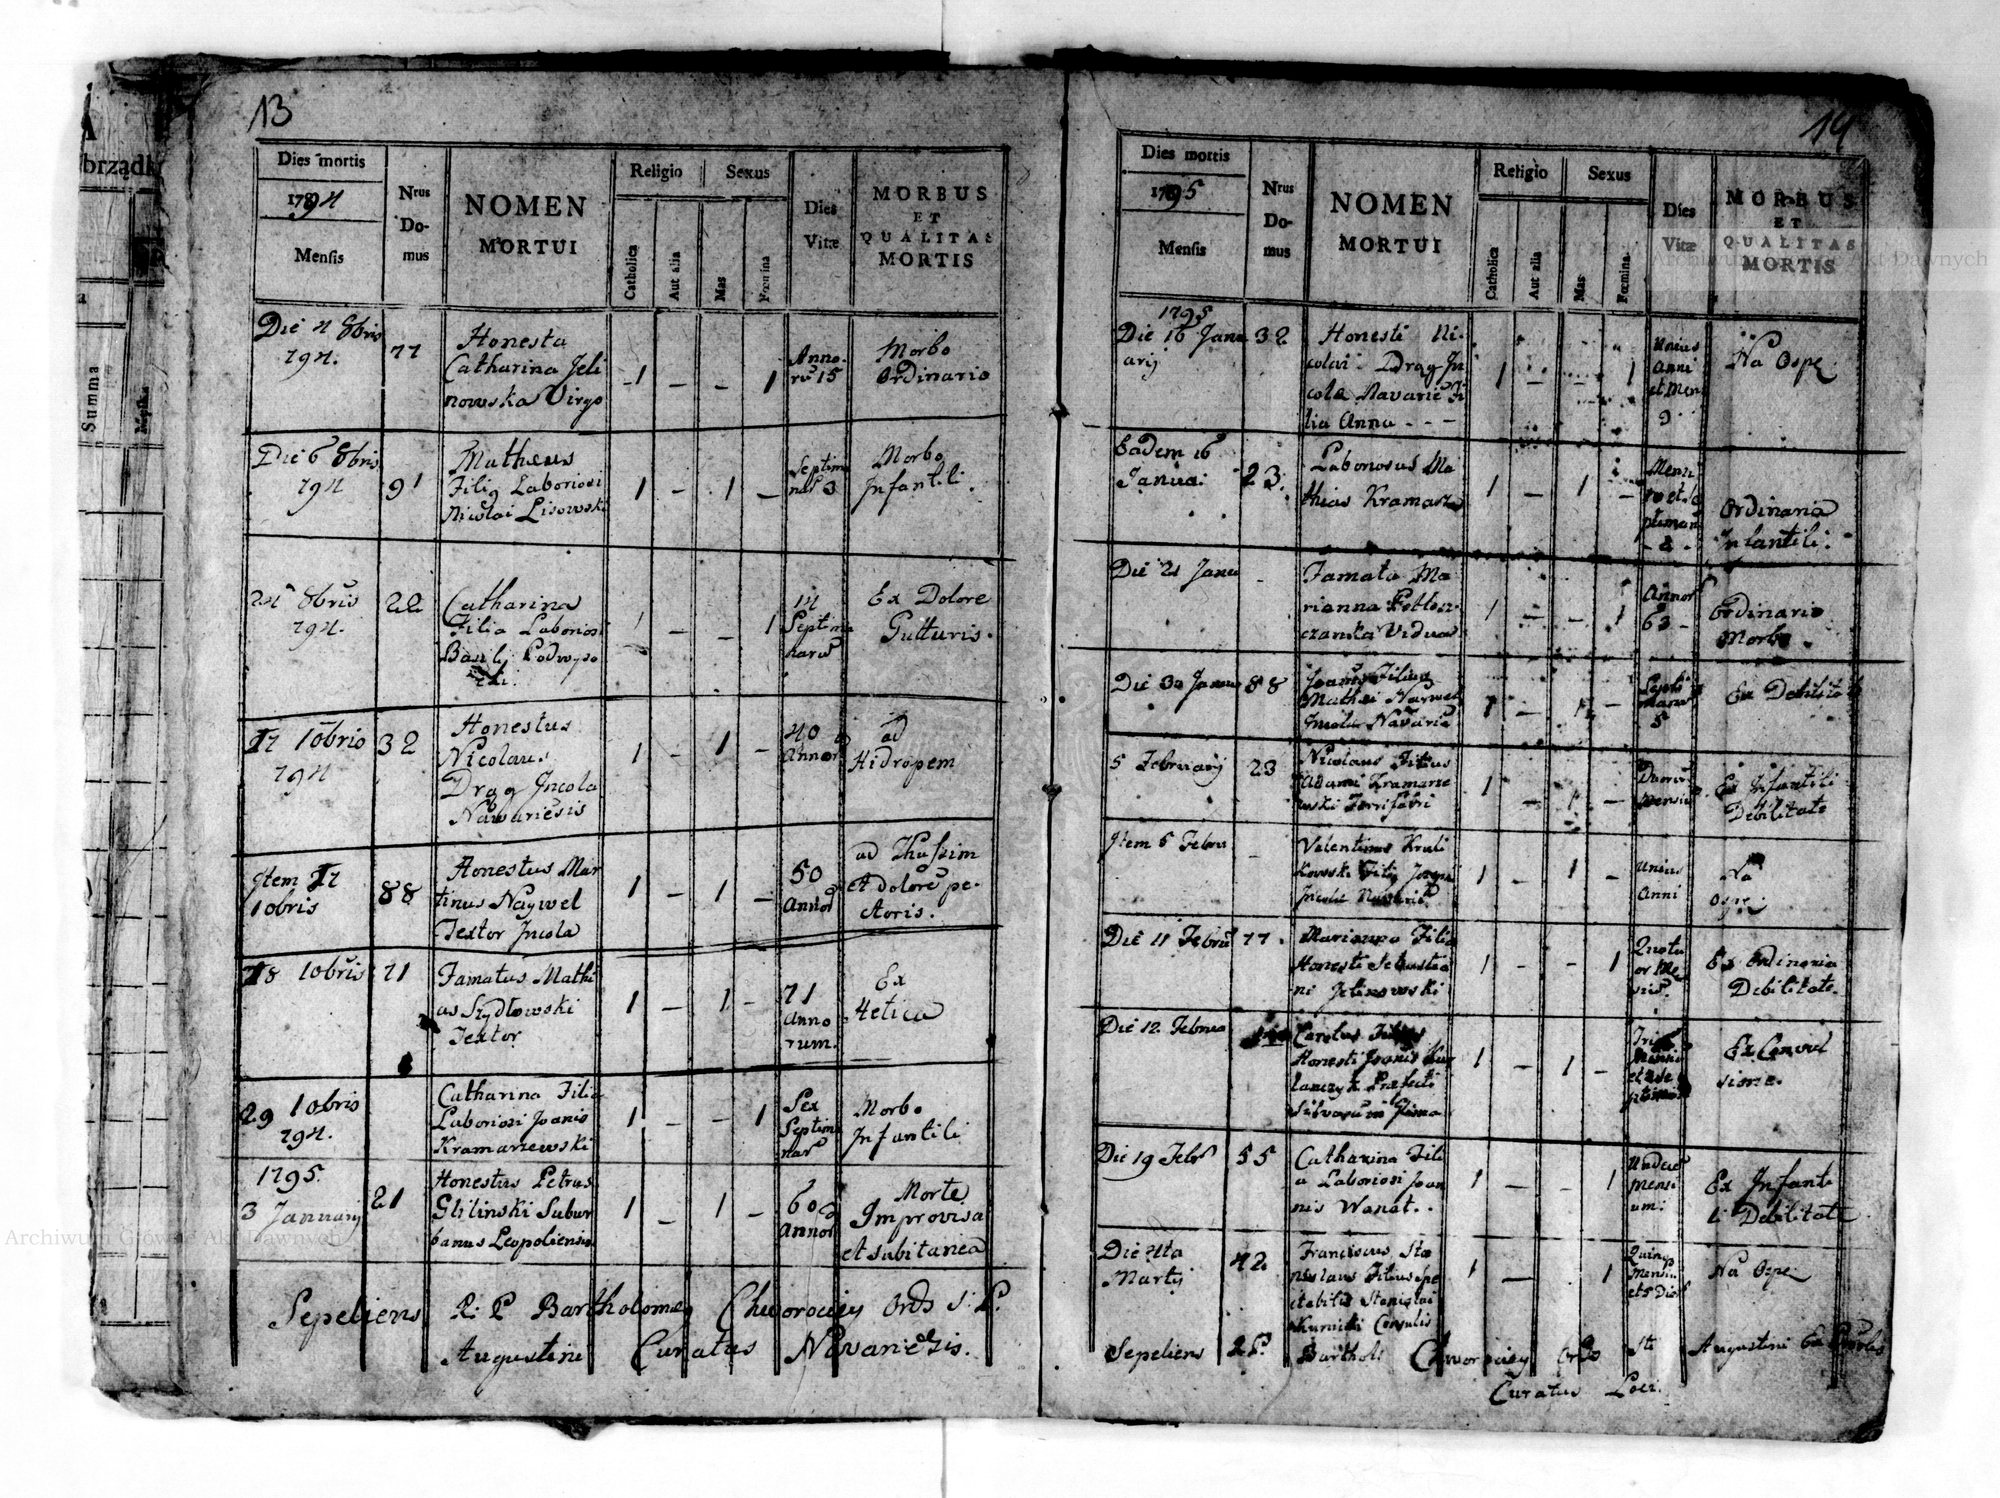 13
Dies mortis
1794
Mensis
Nrus
Do-
mus
NOMEN
MORTUI
Religio
Catholica
Aut alia
Sexus
Mas
Fœmina
Dies
Vitæ
MORBUS
ET
QUALITAS
MORTIS
Die 4 8bris
794.
77
Honesta
Catharina Jeli
nowska Virgo
1 - - 1
Anno-
rũ 15
Morbo
Ordinario
Die 6 8bris
794
91
Matheus
Filiq Laboriosi
Nicolai Lisowski
1 - 1 -
Septim
nar 3
Morbo
Jnfantili.
24 8bris
794.
22
Catharina
Filia Laboriosi
Basilij Podwyso
cki.
1 - - 1
14
Septima
narũ
Ex Dolore
Gutturis.
17 10bris
794
32
Honestus
Nicolaus
Drag Jncola
Nawariesis
1 - 1 -
40
Annor
ad
Hidropem
Jtem 17
10bris
88
Honestus Mar
tinus Naywel
Textor Jncola
1 - 1 -
50
Annor
ad Thussim
et dolore pe-
ctoris.
18 10bris
71
Famatus Mathi
as Szydłowski
Textor
1 - 1 -
71
Anno
rum.
Ex
Hetica
29 10bris
794.
Catharina Filia
Laboriosi Joanis
Kramarzewski
1 - - 1
Sex
Septima
nar
Morbo
Jnfantili
1795.
3 Januarij
21
Honestus Petrus
Glilinski Subur
banus Leopoliensis
1 - 1 -
60
Annor
Morte
Improvisa
et subitanea
Sepeliens R. P. Bartholomeq Chworociey Ords S. P.
Augustini Curatus Navariesis.
14
Dies mortis
1795
Mensis
Nrus
Do-
mus
NOMEN
MORTUI
Religio
Catholica
Aut alia
Sexus
Mas
Fœmina
Dies
Vitæ
MORBUS
ET
QUALITAS
MORTIS
1795
Die 16 Janu
arij
32
Honesti Ni-
colai Drag Jn
cola Navarie Fi
lia Anna - - -
1 - - 1
Unius
Anni
et Mens
9
Na Ospę
Eadem 16
Janua:
23.
Laboriosus Ma
thias Kramarz
1 - 1 -
Ordinaria
Infantili.
Die 21 Janu
-
Famata Ma
rianna
czanska Vidua
1 - - 1
Annor
63 -
Ordinario
Morbo.
Die 30 Janua
88
Joanes Filius
Mathei Naywel
Jncola Navarie
1 - 1 -
Septi
manar
5
Ex Debilita
5 Februarij
23
Nicolaus Filius
Adami Kramarze
wski Ferrifabri
1 - 1 -
Duorũ
Mensiũ
Ex Jnfantili
Debilitate
Jtem 6 Febru
-
Valentinus Kruli
kowski Filiq Josephi
Jncola Navarie
1 - 1 -
Unius
Anni
Na
Ospę
Die 11 Febru
77.
Marianna Filia
Honesti Sebastia
ni Jelinowski
1 - - 1
Quatu
or Me
Ex Ordinaria
Debilitate.
Die 12. Februa
Carolus Filius
Honesti Joanis
Præfecti
Silvarum
1 - 1 -
Ex Convul
sione.
Die 19 Febr
55
Catharina Fili
a Laboriosi Joan
nis Wanat.
1 - - 1
Undeci
Mensi
um:
Ex Jnfanti
li Debilitate
Die 4ta
Martij
42
Franciscus, Sta
nislaus Filius Spe
ctabilis Stanislai
Kurnicki Consulis
1 - 1
Quinq
Mensiũ
et 5 Dier
Na Ospę
Sepeliens R. P. Barthol: Chworociey Ords Sti Augustini
Curatus Loci.
brządk
Summa
Archiwum Główne Akt Dawnych
Archiwum Główne Akt Dawnych